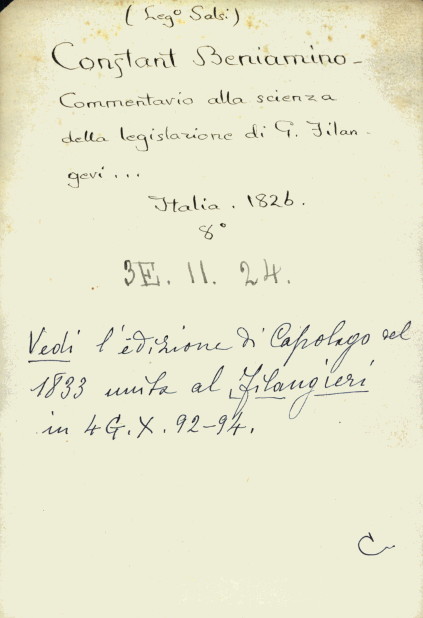 (Leg° Salsi)
Constant Beniamino -
Commentario alla scienza
della legislazione di G. Filan-
geri...
Italia. 1826.
8°
3E. II. 24.
Vedi l'edizione di Capolago del
1833 unita al Filangieri
in 4G.X.92-94.
C